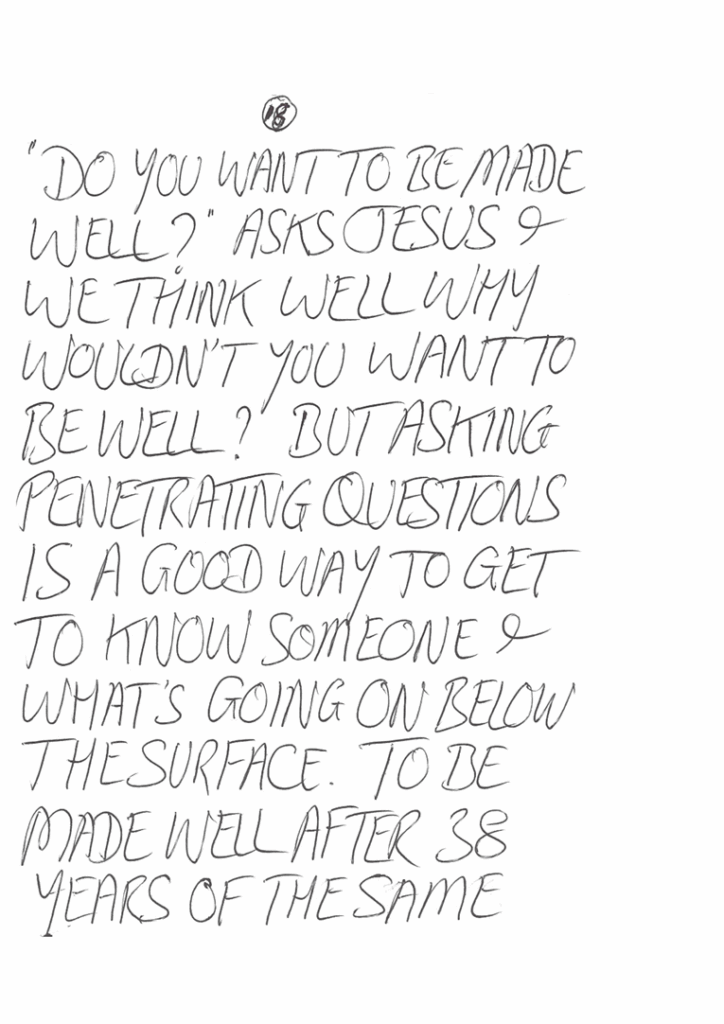 18
"DO YOU WANT TO BE MADE
WELL?" ASKS JESUS &
WE THINK WELL WHY
WOULDN'T YOU WANT TO
BE WELL? BUT ASKING
PENETRATING QUESTIONS
IS A GOOD WAY TO GET
TO KNOW SOMEONE &
WHAT'S GOING ON BELOW
THE SURFACE. TO BE
MADE WELL AFTER 38
YEARS OF THE SAME